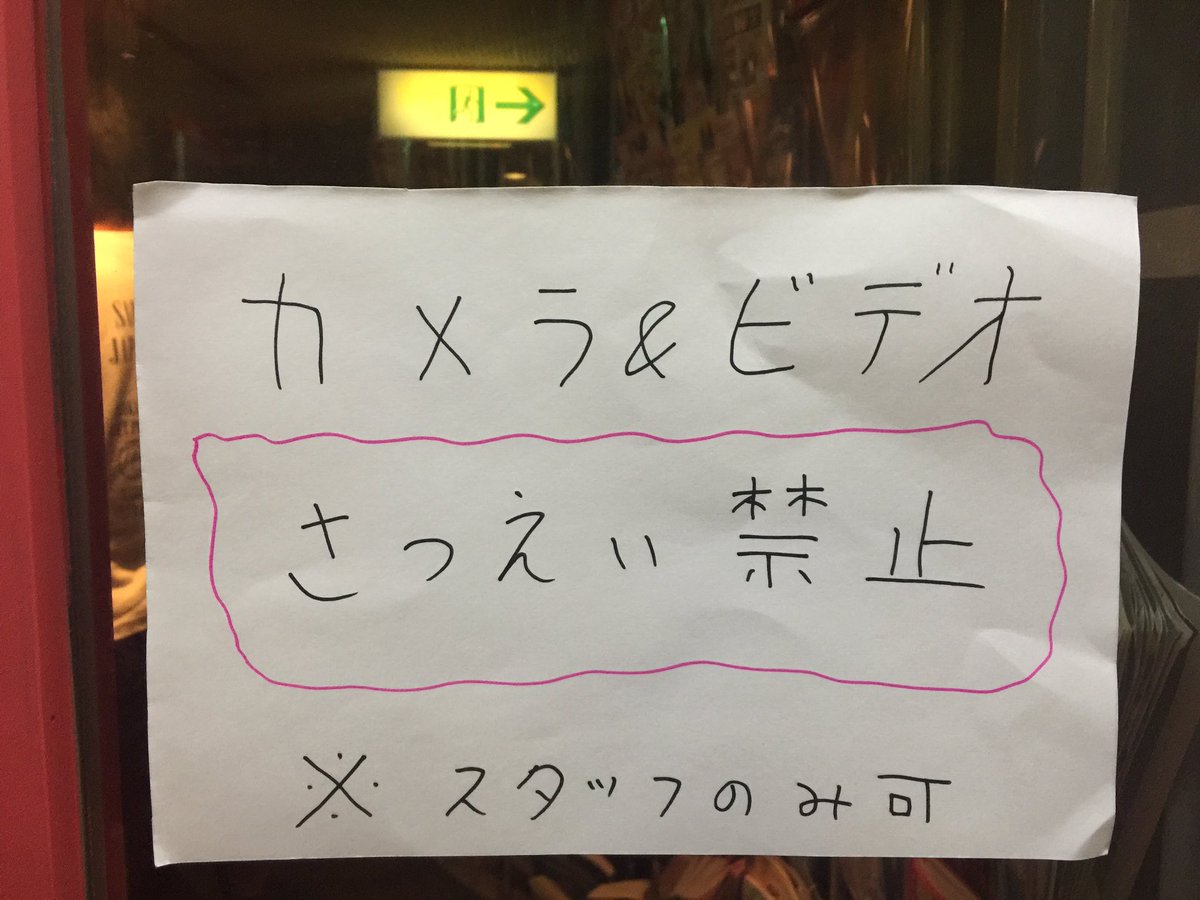 カメラ&ビデオ
さつえい禁止
※ スタッフのみ可